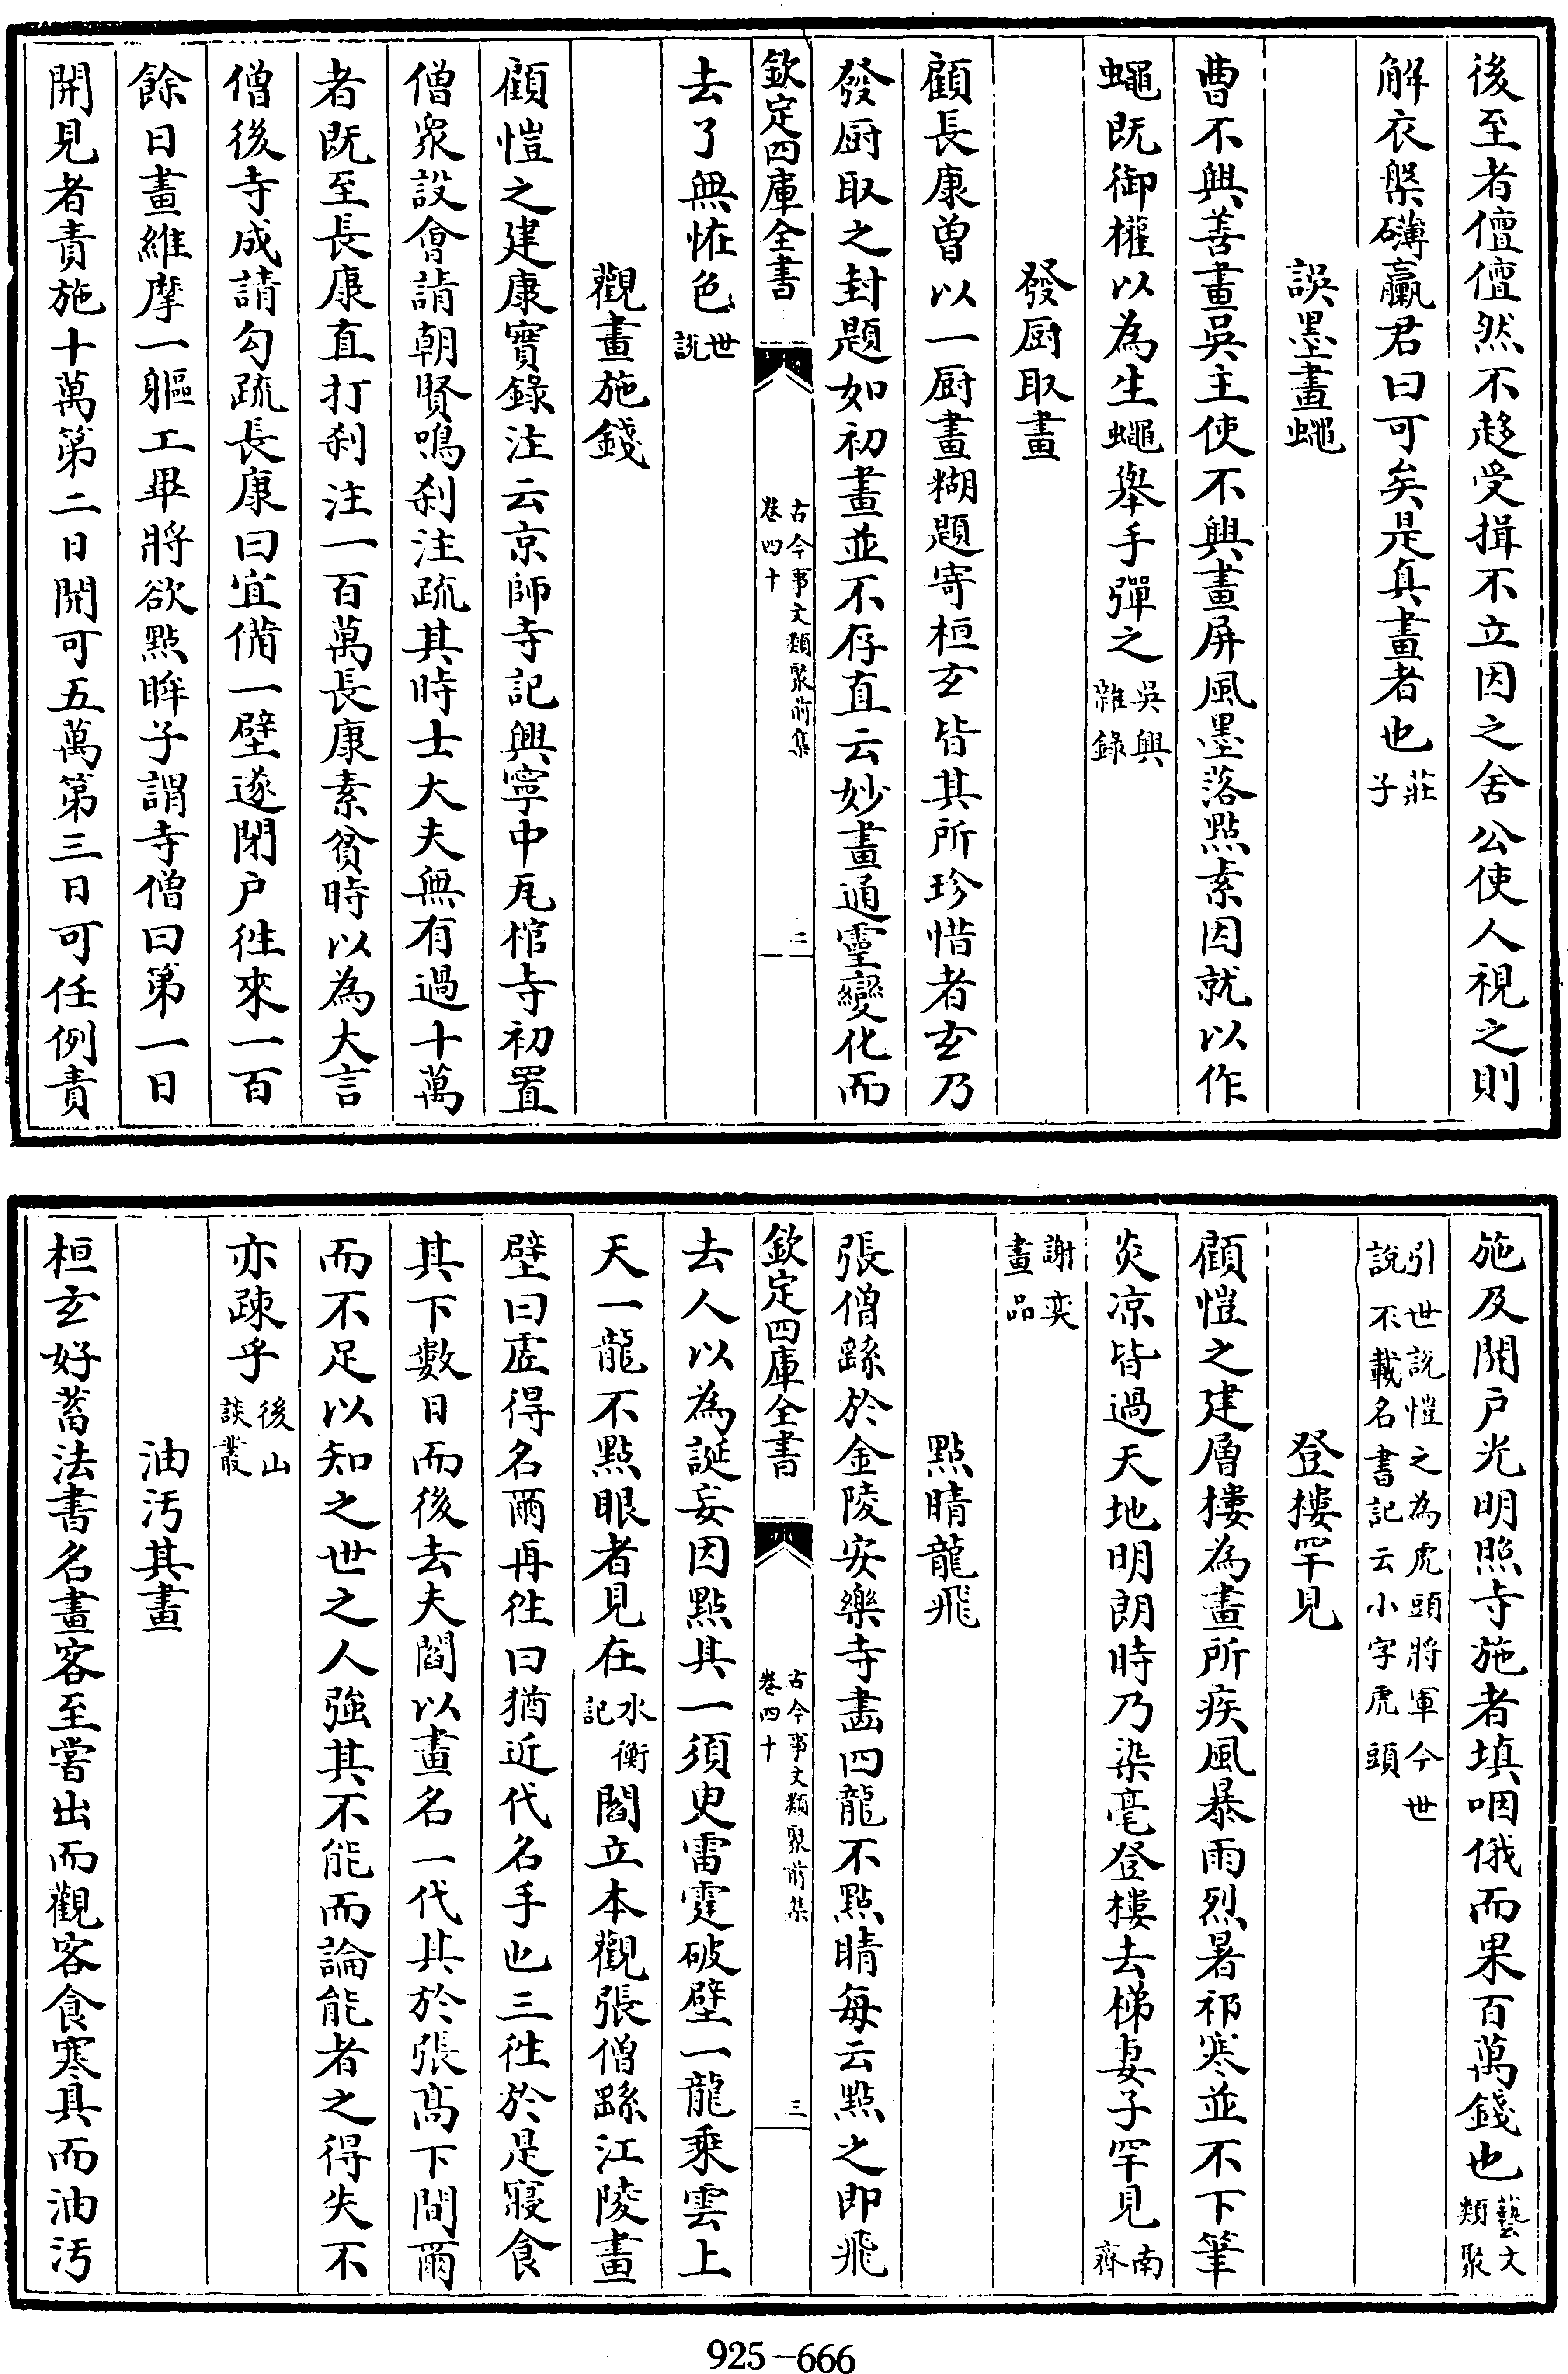 後至者儃儃然不趍受揖不立因之舍公使人視之則
解衣槃礴臝君曰可矣是真畫者也莊子
誤墨畫蠅
曹不興善畫吳主使不興畫屏風墨落點素因就以作
蠅既御權以為生蠅舉手彈之吳興雜錄
發厨取畫
顧長康曾以一厨畫糊題寄桓玄皆其所珍惜者玄乃
發厨取之封題如初畫並不存直云妙畫通靈變化而
欽定四庫全書
古今事文類聚前集
卷四十
二
去了無恠色世說
觀畫施錢
顧愷之建康實錄注云京師寺記興寧中瓦棺寺初置
僧衆設會請朝賢鳴刹注疏其時士大夫無有過十萬
者既至長康直打刹注一百萬長康素貧時以為大言
僧後寺成請勾疏長康曰宜備一壁遂閉户徃來一百
餘日畫維摩一軀工畢將欲點眸子謂寺僧曰第一日
開見者責施十萬第二日開可五萬第三日可任例責
施及開户光明照寺施者填咽俄而果百萬錢也藝文類聚
引世說愷之為虎頭將軍今世說不載名書記云小字虎頭
登樓罕見
顧愷之建層樓為畫所疾風暴雨烈暑祁寒並不下筆
炎凉皆過天地明朗時乃染毫登樓去梯妻子罕見南齊
謝奕畫品
點睛龍飛
張僧繇於金陵安樂寺畵四龍不點睛每云點之即飛
欽定四庫全書
古今事文類聚前集
卷四十
三
去人以為誕妄因點其一須臾雷霆破壁一龍乘雲上
天一龍不點眼者見在水衡記閻立本觀張僧繇江陵畫
壁曰虛得名爾再徃曰猶近代名手也三徃於是寢食
其下數日而後去夫閻以畫名一代其於張髙下間爾
而不足以知之世之人強其不能而論能者之得失不
亦疎乎後山談叢
油汚其畫
桓玄好蓄法書名畫客至嘗出而觀客食寒具而油汚
925-666